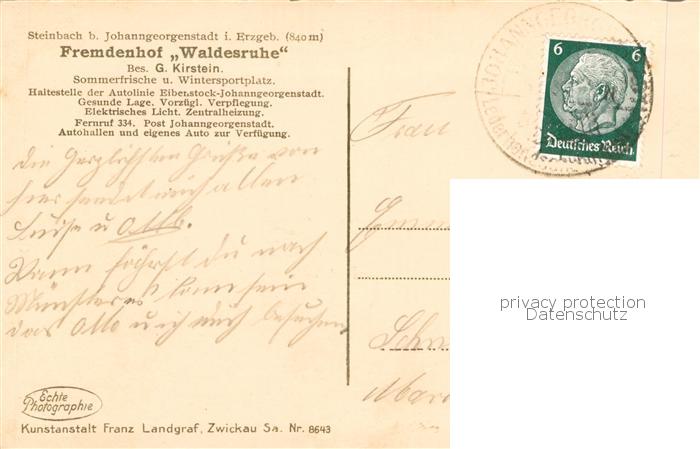 Steinbach b. Johanngeorgenstadt i. Erzgeb. (840 m)
Fremdenhof „Waldesruhe“
Bes. G. Kirstein.
Sommerfrische u. Wintersportplatz.
Haltestelle der Autolinie Eibenstock-Johanngeorgenstadt.
Gesunde Lage. Vorzügl. Verpflegung.
Elektrisches Licht. Zentralheizung.
Fernruf 334. Post Johanngeorgenstadt.
Autohallen und eigenes Auto zur Verfügung.
Die Herzlichsten Grüße von
hier sendet euch allen
Luise u Otto.
Wann fährst du nach
Münster es kann sein
das Otto u ich euch besuchen
Echte
Photographie
Kunstanstalt Franz Landgraf, Zwickau Sa. Nr. 8643
JOHANNGEORG
6 6
Deutsches Reich
Frau
privacy protection
Datenschutz